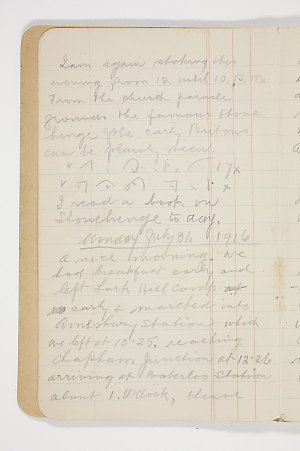 I am again stoking this
evening from 12 until 10 P.M.
From the church parade
grounds the famous Stone
henge of the early Britons
can be plainly seen.
I read a book on
Stonehenge to day.
Monday July 31, 1916
A nice morning. We
had breakfast early and
left Lark Hill Camp at
early & marched into
Amesbury Station which
we left at 10'25, reaching
Chapham Junction at 12'26
arriving at Waterloo Station
about 1. O'Clock,